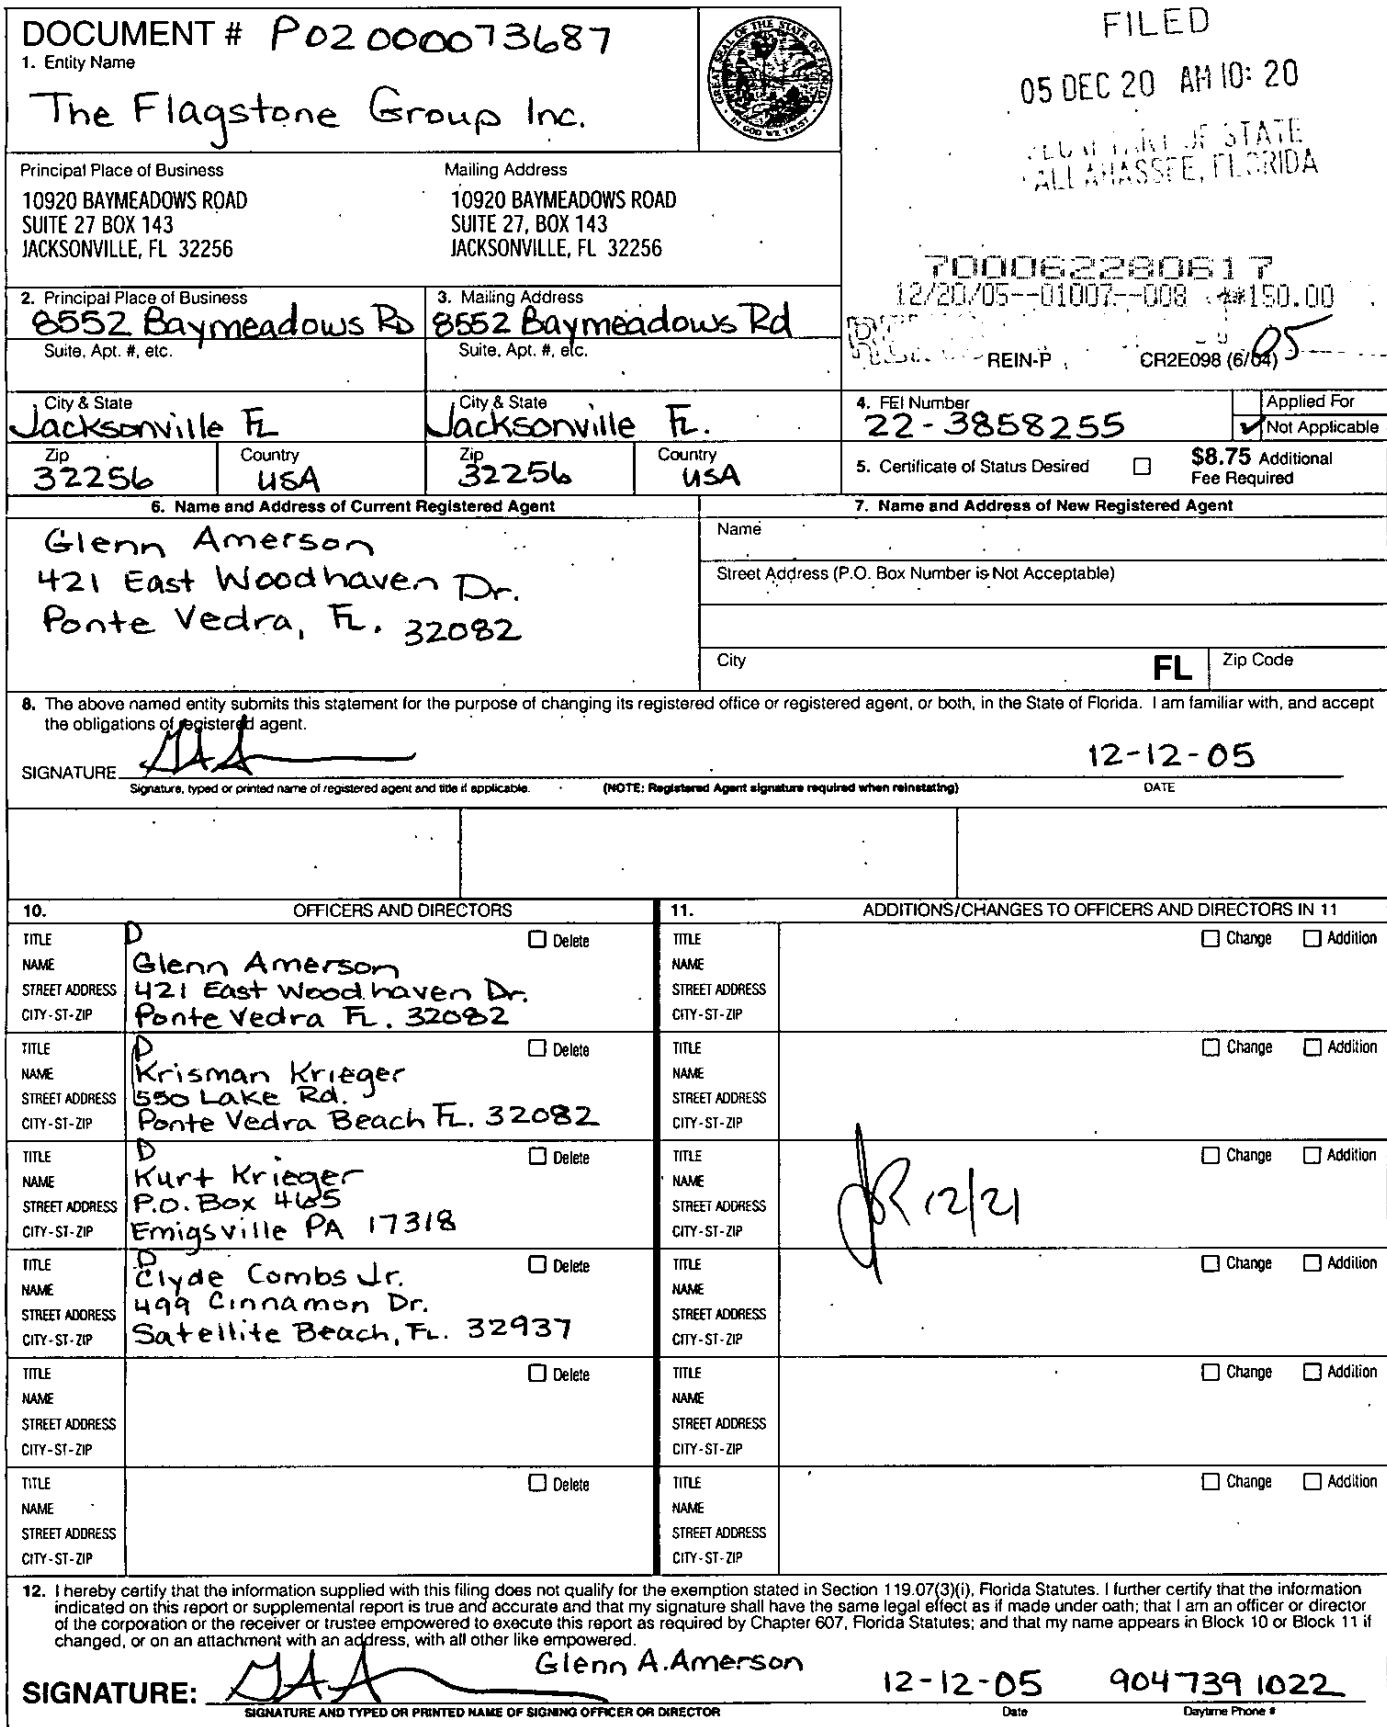 DOCUMENT # P02000073687
1. Entity Name
The Flagstone Group Inc.
GREAT SEAL OF THE STATE OF FLORIDA
IN GOD WE TRUST
FILED
05 DEC 20 AM 10: 20
OF STATE
TALLAHASSEE, FLORIDA
Principal Place of Business
10920 BAYMEADOWS ROAD
SUITE 27 BOX 143
JACKSONVILLE, FL 32256
Mailing Address
10920 BAYMEADOWS ROAD
SUITE 27, BOX 143
JACKSONVILLE, FL 32256
700062280617
12/20/05--01007--008 **150.00
REIN-P CR2E098 (6/04) 05
2. Principal Place of Business
8552 Baymeadows RD
Suite, Apt. #, etc.
City & State
Jacksonville FL
Zip
32256
Country
USA
3. Mailing Address
8552 Baymeadows Rd
Suite, Apt. #, etc.
City & State
Jacksonville FL.
Zip
32256
Country
USA
4. FEI Number
22-3858255
Applied For
Not Applicable
5. Certificate of Status Desired
$8.75 Additional
Fee Required
6. Name and Address of Current Registered Agent
Glenn Amerson
421 East Woodhaven Dr.
Ponte Vedra, FL. 32082
7. Name and Address of New Registered Agent
Name
Street Address (P.O. Box Number is Not Acceptable)
City
FL
Zip Code
8. The above named entity submits this statement for the purpose of changing its registered office or registered agent, or both, in the State of Florida. I am familiar with, and accept
the obligations of registered agent.
SIGNATURE
12-12-05
Signature, typed or printed name of registered agent and title if applicable.
(NOTE: Registered Agent signature required when reinstating)
DATE
10. OFFICERS AND DIRECTORS
TITLE D Delete
NAME Glenn Amerson
STREET ADDRESS 421 East Woodhaven Dr.
CITY-ST-ZIP Ponte Vedra FL. 32082
TITLE D Delete
NAME Krisman Krieger
STREET ADDRESS 550 Lake Rd.
CITY-ST-ZIP Ponte Vedra Beach FL. 32082
TITLE D Delete
NAME Kurt Krieger
STREET ADDRESS P.O. Box 465
CITY-ST-ZIP Emigsville PA 17318
TITLE D Delete
NAME Clyde Combs Jr.
STREET ADDRESS 499 Cinnamon Dr.
CITY-ST-ZIP Satellite Beach, FL. 32937
TITLE Delete
NAME
STREET ADDRESS
CITY-ST-ZIP
TITLE Delete
NAME
STREET ADDRESS
CITY-ST-ZIP
11. ADDITIONS/CHANGES TO OFFICERS AND DIRECTORS IN 11
TITLE Change Addition
NAME
STREET ADDRESS
CITY-ST-ZIP
TITLE Change Addition
NAME
STREET ADDRESS
CITY-ST-ZIP
TITLE Change Addition
NAME
STREET ADDRESS 12/21
CITY-ST-ZIP
TITLE Change Addition
NAME
STREET ADDRESS
CITY-ST-ZIP
TITLE Change Addition
NAME
STREET ADDRESS
CITY-ST-ZIP
TITLE Change Addition
NAME
STREET ADDRESS
CITY-ST-ZIP
12. I hereby certify that the information supplied with this filing does not qualify for the exemption stated in Section 119.07(3)(i), Florida Statutes. I further certify that the information
indicated on this report or supplemental report is true and accurate and that my signature shall have the same legal effect as if made under oath; that I am an officer or director
of the corporation or the receiver or trustee empowered to execute this report as required by Chapter 607, Florida Statutes; and that my name appears in Block 10 or Block 11 if
changed, or on an attachment with an address, with all other like empowered.
Glenn A. Amerson
SIGNATURE: 12-12-05 904 739 1022
SIGNATURE AND TYPED OR PRINTED NAME OF SIGNING OFFICER OR DIRECTOR Date Daytime Phone #